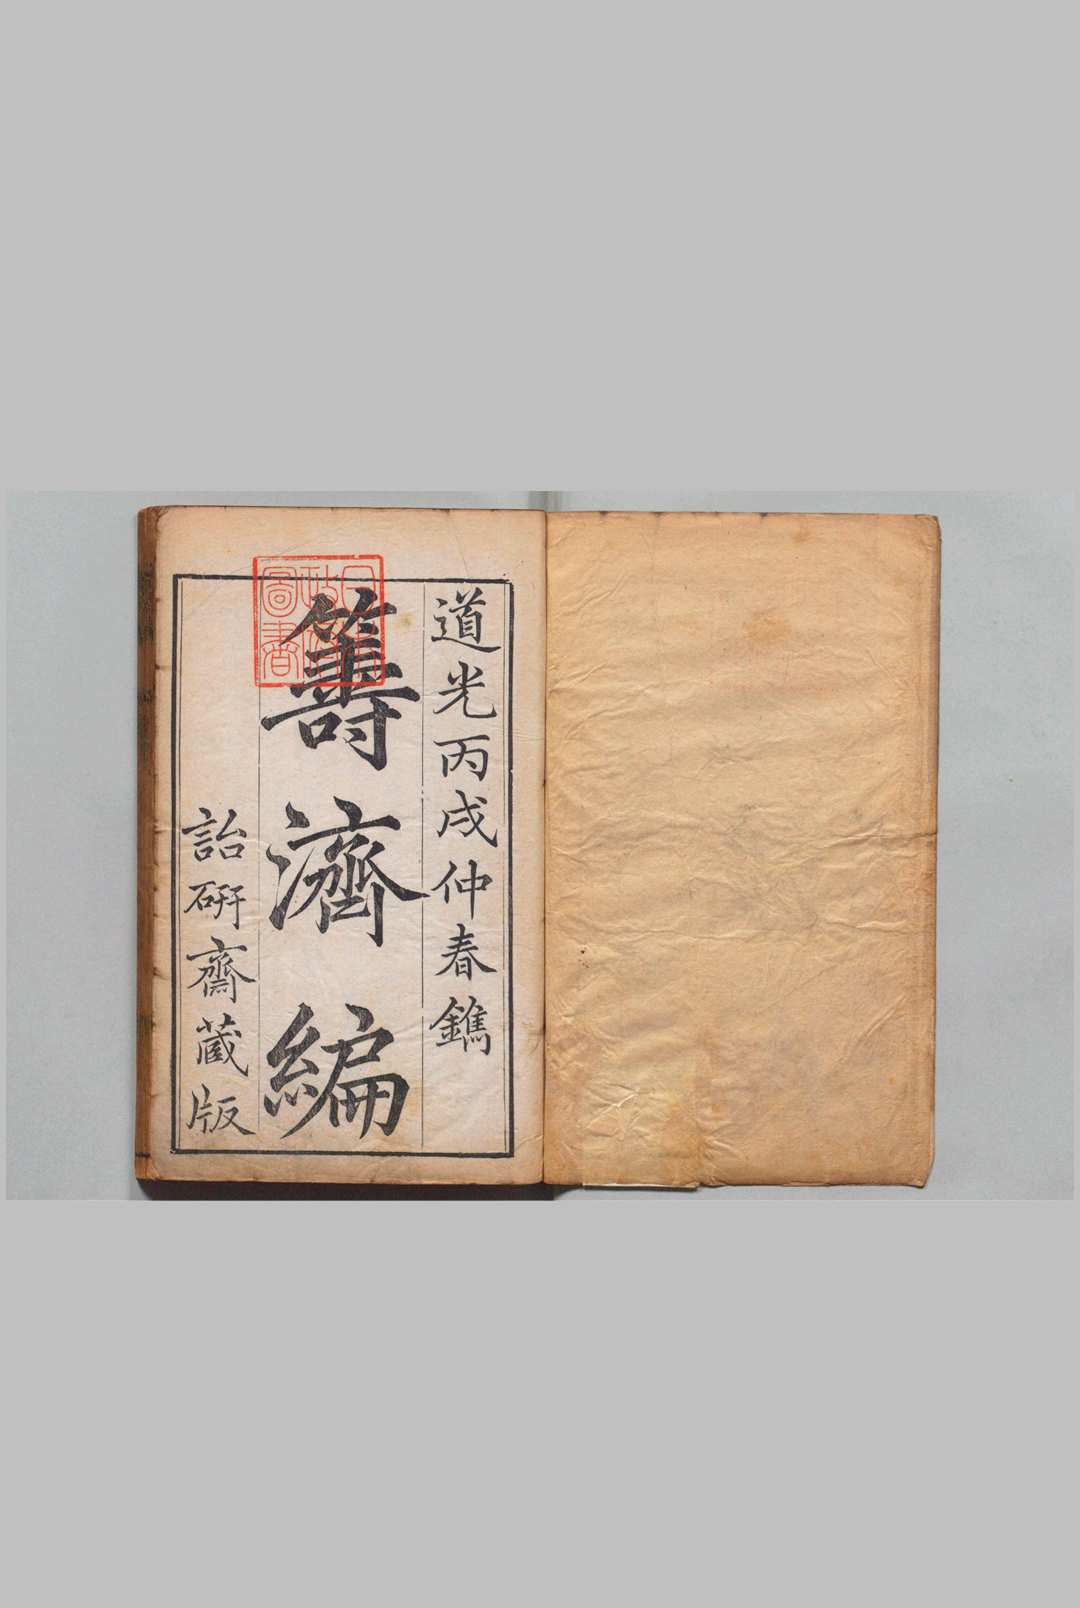 道光丙戌仲春鐫
籌濟編
詒硏齋藏版
圖書